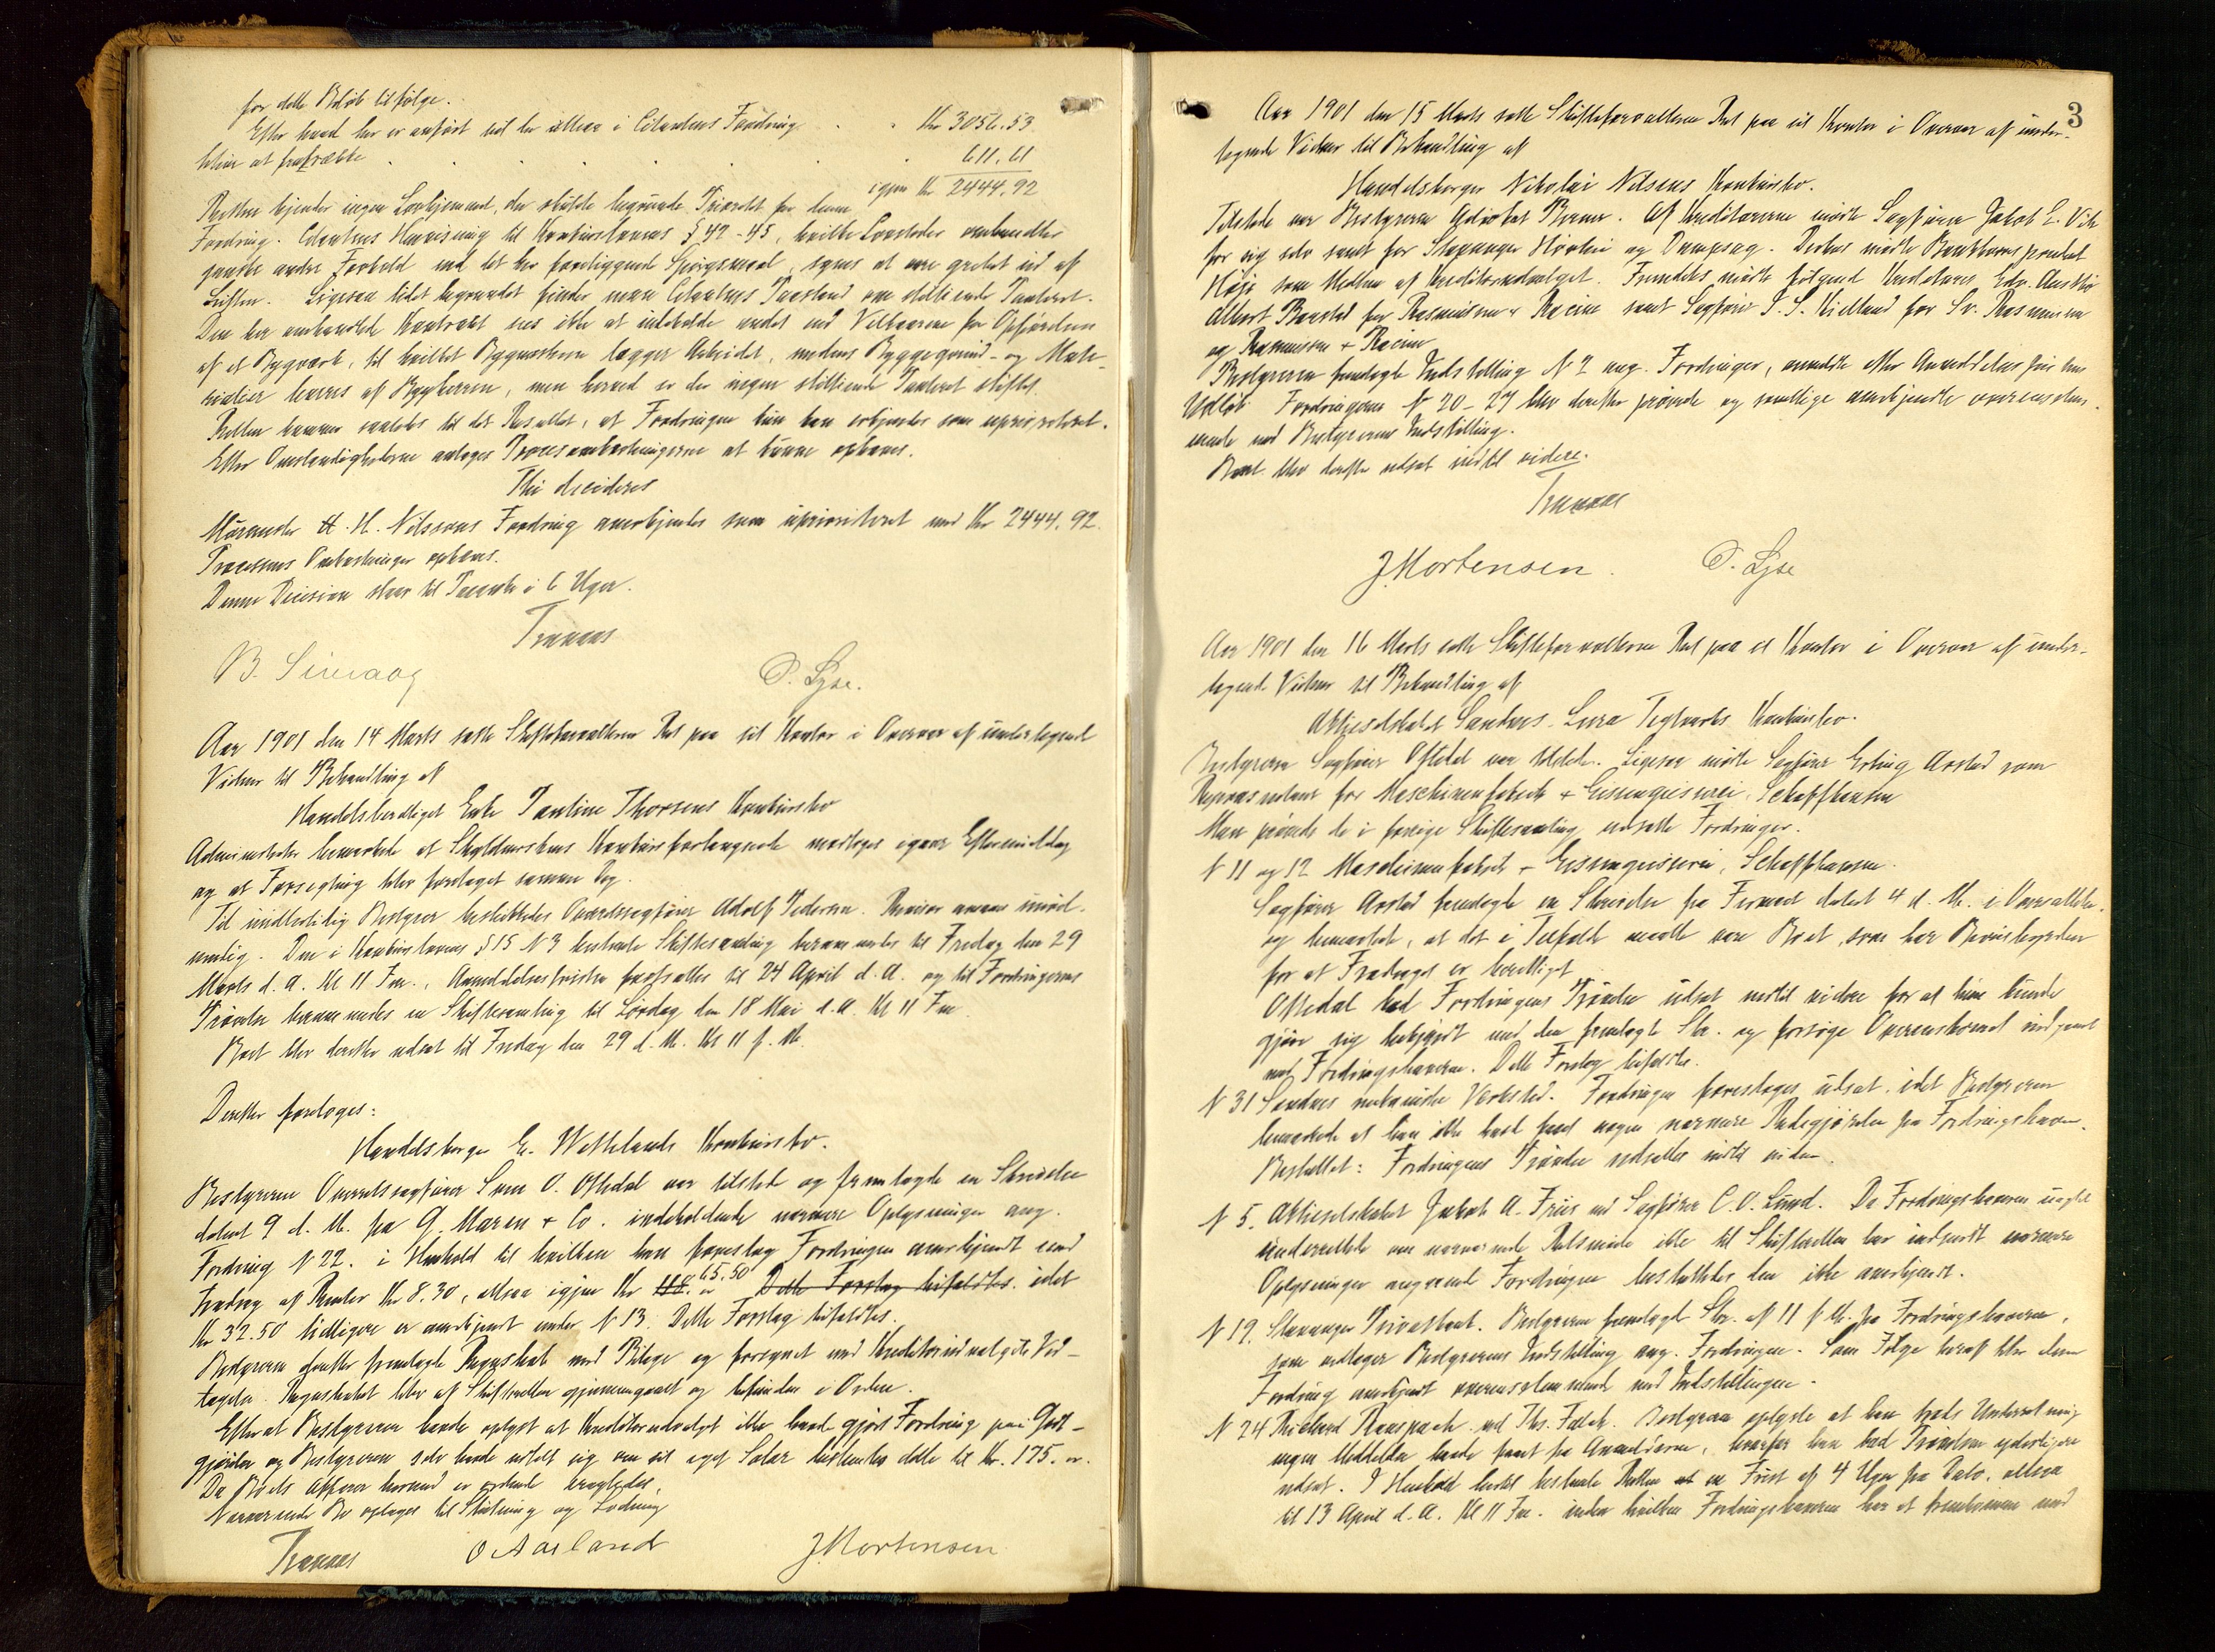 for dette Beløb tilfølge.
Efter hvad her er anført vil der altsaa i Citantens Fordring . . Kr 3056.53
blive at fratrække . . . . . . 611.61
igjen Kr 2444.92
Retten kjender ingen Lovhjemmel, der skulde begrunde Prioritet for denne
Fordring. Citantens Henvisning til Konkurslovens § 42-45, hvilke Lovsteder omhandler
ganske andre Forhold end det her foreliggende Spørgsmaal, synes at være grebet ud af
Luften. Ligesaa lidet begrundet finder man Citantens Paastand om stiltiende Panteret.
Den her omhandlede Kontrakt sees ikke at indeholde andet end Vilkaarene for Opførelsen
af et Bygværk, til hvilket Bygmesteren lægger Arbeidet, medens Byggegrund- og Mate-
rialier leveres af Bygherren, men herved er der ingen stiltiende Panteret stiftet.
Retten kommer saaledes til det Resultat, at Fordringen kun kan erkjendes som uprioriteret.
Efter Omstændighederne antages Procesomkostningerne at kunne ophæves.
Thi decideres
Murmester H. H. Nilssens Fordring anerkjendes som uprioriteret med Kr 2444.92.
Processens Omkostninger ophæves.
Denne Decision staar til Paaanke i 6 Uger.
Tranaas
B. Simaag O. Lyse.
Aar 1901 den 14 Marts satte Skifteforvalteren Ret paa sit Kontor i Overvær af undertegnede
Vidner til Behandling af
Handelsberettiget Enke Pauline Thorsens Konkursbo
Administrator bemærkede at Skyldnerskens Konkursforlangende modtoges igaar Eftermiddag
og at Forsegling blev foretaget samme Dag.
Til midlertidig Bestyrer beskikkedes Overretssagfører Adolf Pedersen. Revisor ansaaes unød-
vendig. Den i Konkurslovens § 15 N 3 bestemte Skiftesamling berammedes til Fredag den 29
Marts d. A. Kl 11 Fm., Anmeldelsesfristen fastsattes til 24 April d. A. og til Fordringernes
Prøvelse berammedes en Skiftesamling til Lørdag den 18 Mai d. A. Kl 11 Fm.
Boet blev derefter udsat til Fredag den 29 d. M. Kl 11 f. M.
Derefter foretoges:
Handelsborger E. Wettelands Konkursbo.
Bestyreren Overretssagfører Sven O. Oftedal var tilstede og fremlagde en Skrivelse
dateret 9 d. M. fra G. Maren & Co. indeholdende nærmere Oplysninger ang.
Fordring N 22. i Henhold til hvilken han foreslog Fordringen anerkjendt med
Fradrag af Renter Kr 8.30, altsaa igjen Kr 65.50 Dette Forslag bifaldtes. idet
Kr 32.50 tidligere er anerkjendt under N 13. Dette Forslag bifaldtes.
Bestyreren derefter fremlagde Regnskab med Bilage og forsynet med Kreditorudvalgets Ved-
tagelse. Regnskabet blev af Skifteretten gjennemgaaet og befunden i Orden.
Efterat Bestyreren havde oplyst at Kreditorudvalget ikke havde gjort Fordring paa Godt-
gjørelse og Bestyreren selv havde udtalt sig om sit eget Salær bestemtes dette til Kr. 175.
Da Boets Affærer hermed er endelig
Nærværende Bo optages til Slutning og Lodning
Tranaas O Aarland J Mortensen
3
Aar 1901 den 15 Marts satte Skifteforvalteren Ret paa sit Kontor i Overvær af under-
tegnede Vidner til Behandling af
Handelsborger Nikolai Nilsens Konkursbo.
Tilstede var Bestyreren Advokat Berner. Af Kreditorerne mødte Sagfører Jakob E. Vik
for sig selv samt for Stavanger Høvleri og Dampsag. Derhos mødte
Høje som Medlem af Kreditorudvalget. Fremdeles mødte følgende Kreditorer Edv.
Albert Braastad for Rasmussen & Racine samt Sagfører I. S. Kielland for Sv. Rasmussen
og Rasmussen & Racine
Bestyreren fremlagde Indstilling N 2 ang. Fordringer, anmeldte efter Anmeldelsesfristens
Udløb. Fordringerne N 20-27 blev derefter prøvede og samtlige anerkjendte overensstem-
mende med Bestyrerens Indstilling.
Boet blev derefter udsat indtil videre.
Tranaas
J Mortensen. O. Lyse
Aar 1901 den 16 Marts satte Skifteforvalteren Ret paa sit Kontor i Overvær af under-
tegnede Vidner til Behandling af
Aktieselskabet Sandnes-Lura Teglværks Konkursbo.
Bestyreren Sagfører Oftedal var tilstede. Ligesaa mødte Sagfører Erling Aarstad som
Repræsentant for Maschinenfabrik & Eisengiesserei, Schaffhausen
Man prøvede de i forrige Skiftesamling udsatte Fordringer.
N 11 og 12 Maschinenfabrik & Eisengiesserei, Schaffhausen.
Sagfører Aarstad fremlagde en Skrivelse fra Firmaet dateret 4 d. M. i Oversættelse,
og bemærkede, at det i Tilfælde maatte være Boet, som har Bevisbyrden
for at Fradraget er berettiget
Oftedal bad Fordringens Prøvelse udsat indtil videre for at han kunde
gjøre sig bekjendt med den fremlagte Skr. og forsøge Overenskomst indgaaet
med Fordringshaveren. Dette Forslag bifaldtes.
N 31 Sandnes mekaniske Værksted. Fordringen foreslaaes udsat, idet Bestyreren
bemærkede at han ikke havde faaet nogen nærmere Redegjørelse fra Fordringshaveren.
Besluttet: Fordringens Prøvelse udsættes indtil videre.
N 5. Aktieselskabet Jakob A. Friis ved Sagfører C. O. Lund. Da Fordringshaveren uagtet
underrettet om nærværende Retsmøde ikke til Skifteretten har indsendt nærmere
Oplysninger angaaende Fordringen besluttedes den ikke anerkjendt.
N 19. Stavanger Privatbank. Bestyreren fremlagde Skr. af 11 f M. fra Fordringshaveren,
som vedtager Bestyrerens Indstilling ang. Fordringen. Som Følge heraf blev denne
Fordring anerkjendt overensstemmende med Indstillingen.
N 24 Richard Raaspach ved Ths. Falck. Bestyreren oplyste at han trods Underretning
ingen Meddelelse havde faaet fra Anmelderen, hvorfor han bad Prøvelsen yderligere
udsat. I Henhold hertil bestemte Retten en Frist af 4 Uger fra Dato, altsaa
til 13 April d. A. Kl 11 Fm. inden hvilken Fordringshaveren har at fremkomme med